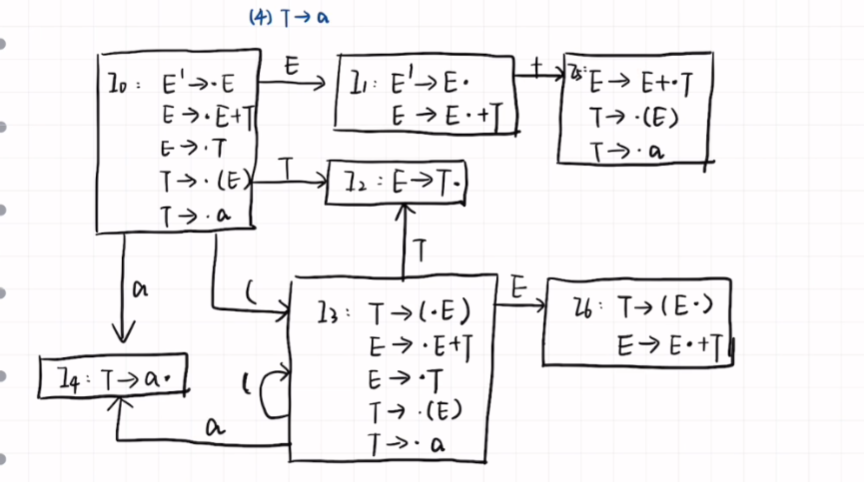 (4) T→a
I0: E'→·E
E→·E+T
E→·T
T→·(E)
T→·a
E
I1: E'→E·
E→E·+T
+
I5: E→E+·T
T→·(E)
T→·a
T
I2: E→T·
T
a
(
I3: T→(·E)
E→·E+T
E→·T
T→·(E)
T→·a
E
I6: T→(E·)
E→E·+T
(
I4: T→a·
a